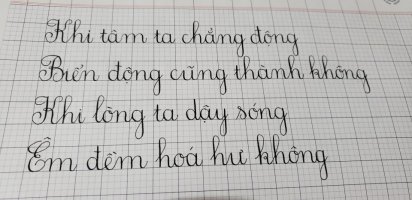 Khi tâm ta chẳng động
Biến động cũng thành không
Khi lòng ta dậy sóng
Êm đềm hoá hư không